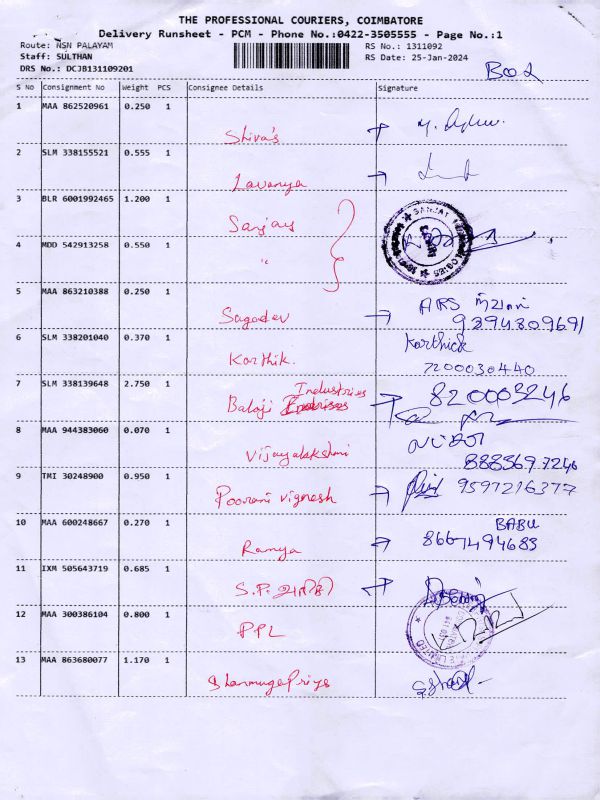 THE PROFESSIONAL COURIERS, COIMBATORE
Delivery Runsheet - PCM - Phone No.:0422-3505555 - Page No.:1
Route: NSN PALAYAM RS No.: 1311092
Staff: SULTHAN RS Date: 25-Jan-2024
DRS No.: DCJB131109201
S No Consignment No Weight PCS Consignee Details Signature
1 MAA 862520961 0.250 1
Shiva's
2 SLM 338155521 0.555 1
Lavanya
3 BLR 6001992465 1.200 1
Sanjay
4 MDD 542913258 0.550 1
"
5 MAA 863210388 0.250 1
Sagadev ARS
9294309691
6 SLM 338201040 0.370 1 Karthick
Karthik. 7200030440
7 SLM 338139648 2.750 1
Industries
Balaji
8 MAA 944383060 0.070 1
Vijayalakshmi
9 TMI 30248900 0.950 1
Poorani vignesh 9597216377
10 MAA 600248667 0.270 1 BABU
Ramya 8667494683
11 IXM 505643719 0.685 1
S.P.
12 MAA 300386104 0.800 1
PPL
13 MAA 863680077 1.170 1
ShanmugaPriya